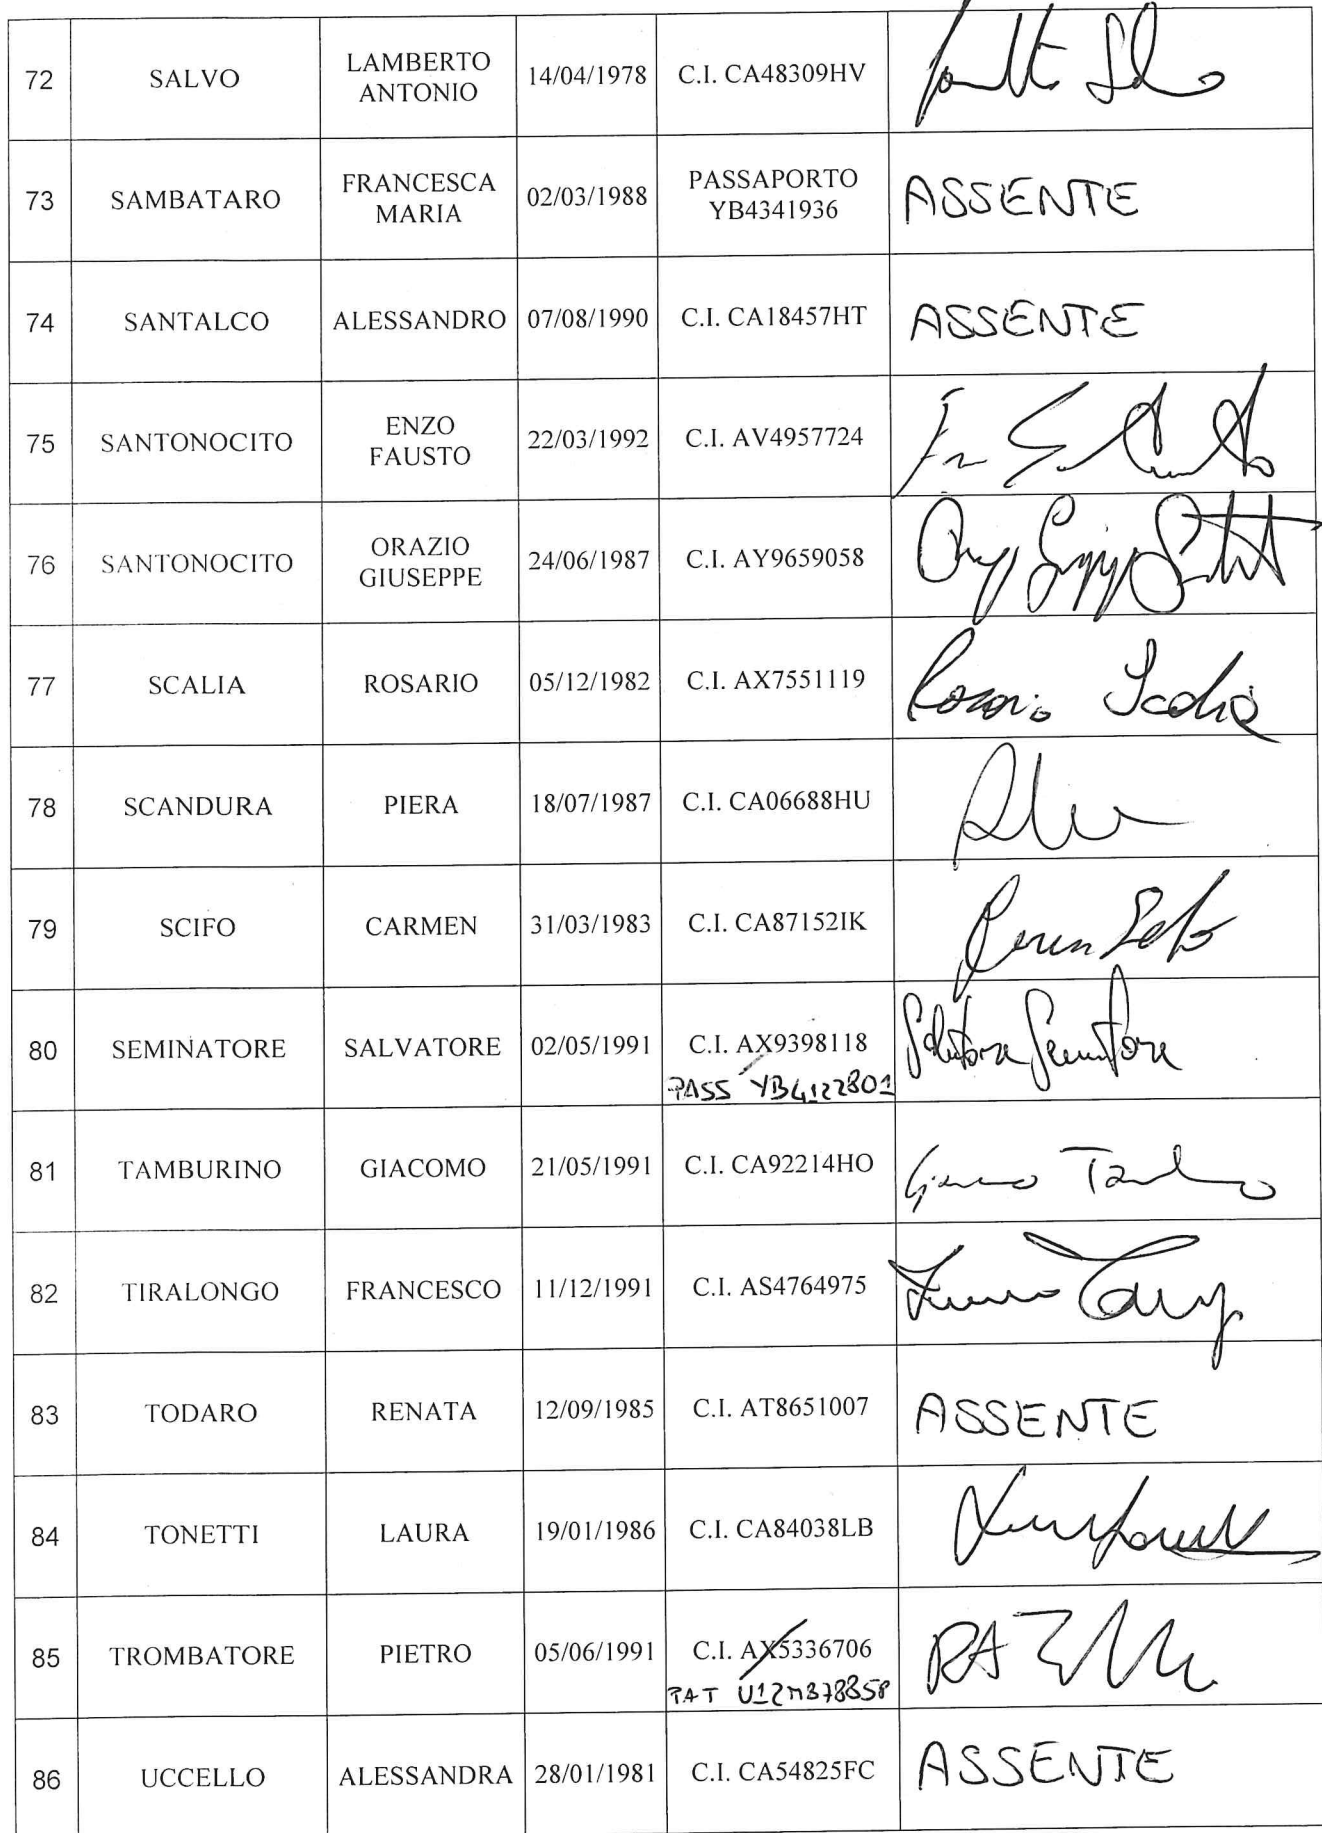 72 SALVO LAMBERTO ANTONIO 14/04/1978 C.I. CA48309HV
73 SAMBATARO FRANCESCA MARIA 02/03/1988 PASSAPORTO YB4341936 ASSENTE
74 SANTALCO ALESSANDRO 07/08/1990 C.I. CA18457HT ASSENTE
75 SANTONOCITO ENZO FAUSTO 22/03/1992 C.I. AV4957724
76 SANTONOCITO ORAZIO GIUSEPPE 24/06/1987 C.I. AY9659058
77 SCALIA ROSARIO 05/12/1982 C.I. AX7551119 Rosario Scalia
78 SCANDURA PIERA 18/07/1987 C.I. CA06688HU
79 SCIFO CARMEN 31/03/1983 C.I. CA87152IK
80 SEMINATORE SALVATORE 02/05/1991 C.I. AX9398118 Salvatore Seminatore
PASS YB4122801
81 TAMBURINO GIACOMO 21/05/1991 C.I. CA92214HO
82 TIRALONGO FRANCESCO 11/12/1991 C.I. AS4764975
83 TODARO RENATA 12/09/1985 C.I. AT8651007 ASSENTE
84 TONETTI LAURA 19/01/1986 C.I. CA84038LB
85 TROMBATORE PIETRO 05/06/1991 C.I. AX5336706
PAT
86 UCCELLO ALESSANDRA 28/01/1981 C.I. CA54825FC ASSENTE